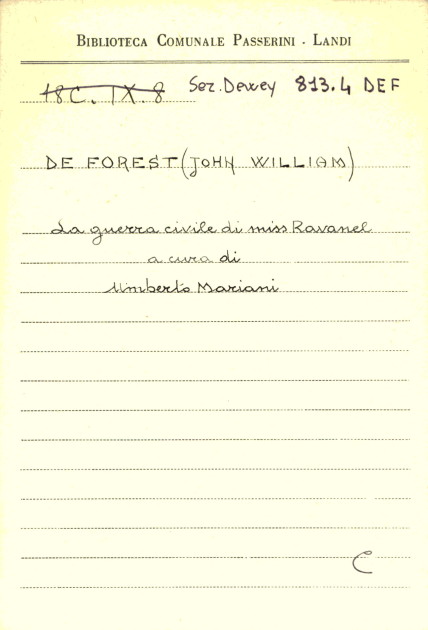 BIBLIOTECA COMUNALE PASSERINI - LANDI
18C. IX. 8 Sez. Dewey 813.4 DEF
DE FOREST (JOHN WILLIAM)
La guerra civile di miss Ravanel
a cura di
Umberto Mariani
C